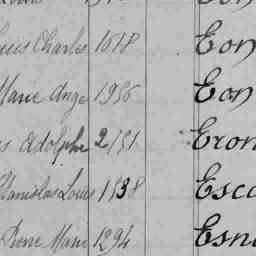 Charles 1018 Eon
Marie Ange 1956 Eon
Adolphe 2151 Eron
Stanislas Louis 1838 Esc
Pierre Marie 1294 Esn